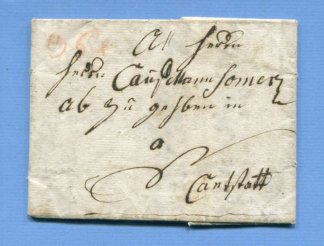 An Herrn
Herrn Cauffmann Somerz
ab zu geben in
a
Canstatt